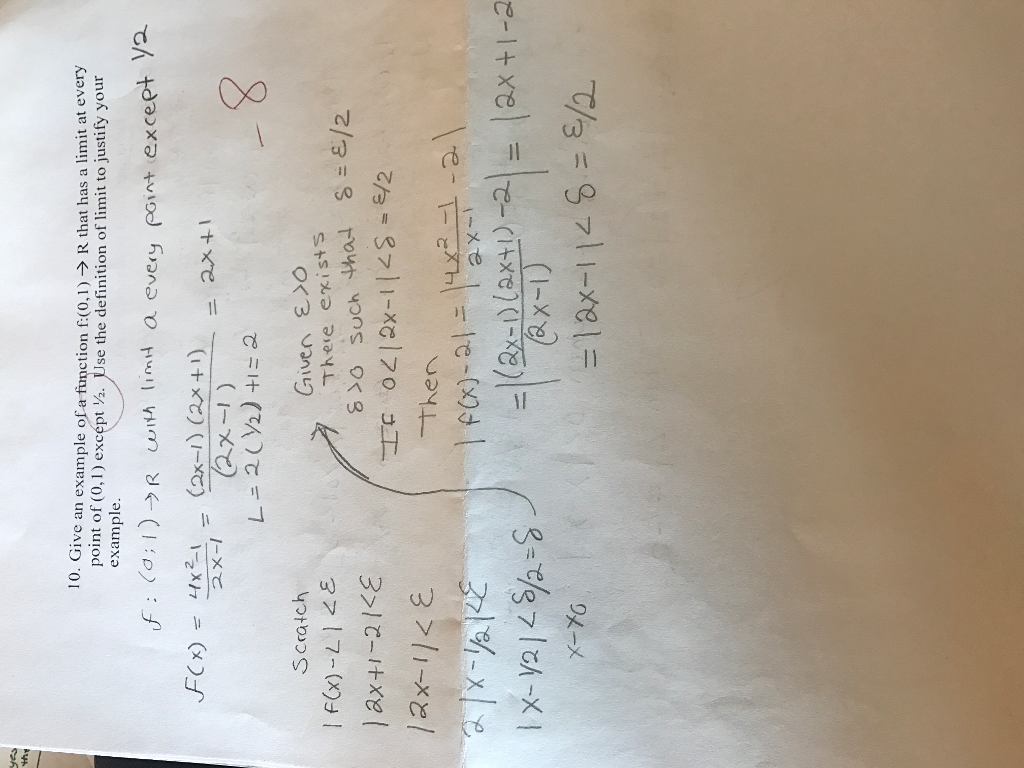 10. Give an example of a function f:(0,1) → R that has a limit at every
point of (0,1) except ½. Use the definition of limit to justify your
example.
f : (0;1) → R with limit a every point except 1/2
f(x) = 4x²-1 / 2x-1 = (2x-1)(2x+1) / (2x-1) = 2x+1
- 8
L = 2(1/2)+1 = 2
Scratch
|f(x)-L| < ε
|2x+1-2| < ε
|2x-1| < ε
2|x-1/2| < ε
|x-1/2| < δ/2 = δ
x-x0
Given ε>0
There exists
δ>0 such that δ = ε/2
If 0<|2x-1|<δ = ε/2
Then
|f(x)-2| = |4x²-1 / 2x-1 - 2|
= |(2x-1)(2x+1) / (2x-1) - 2| = |2x+1-2
= |2x-1| < δ = ε/2